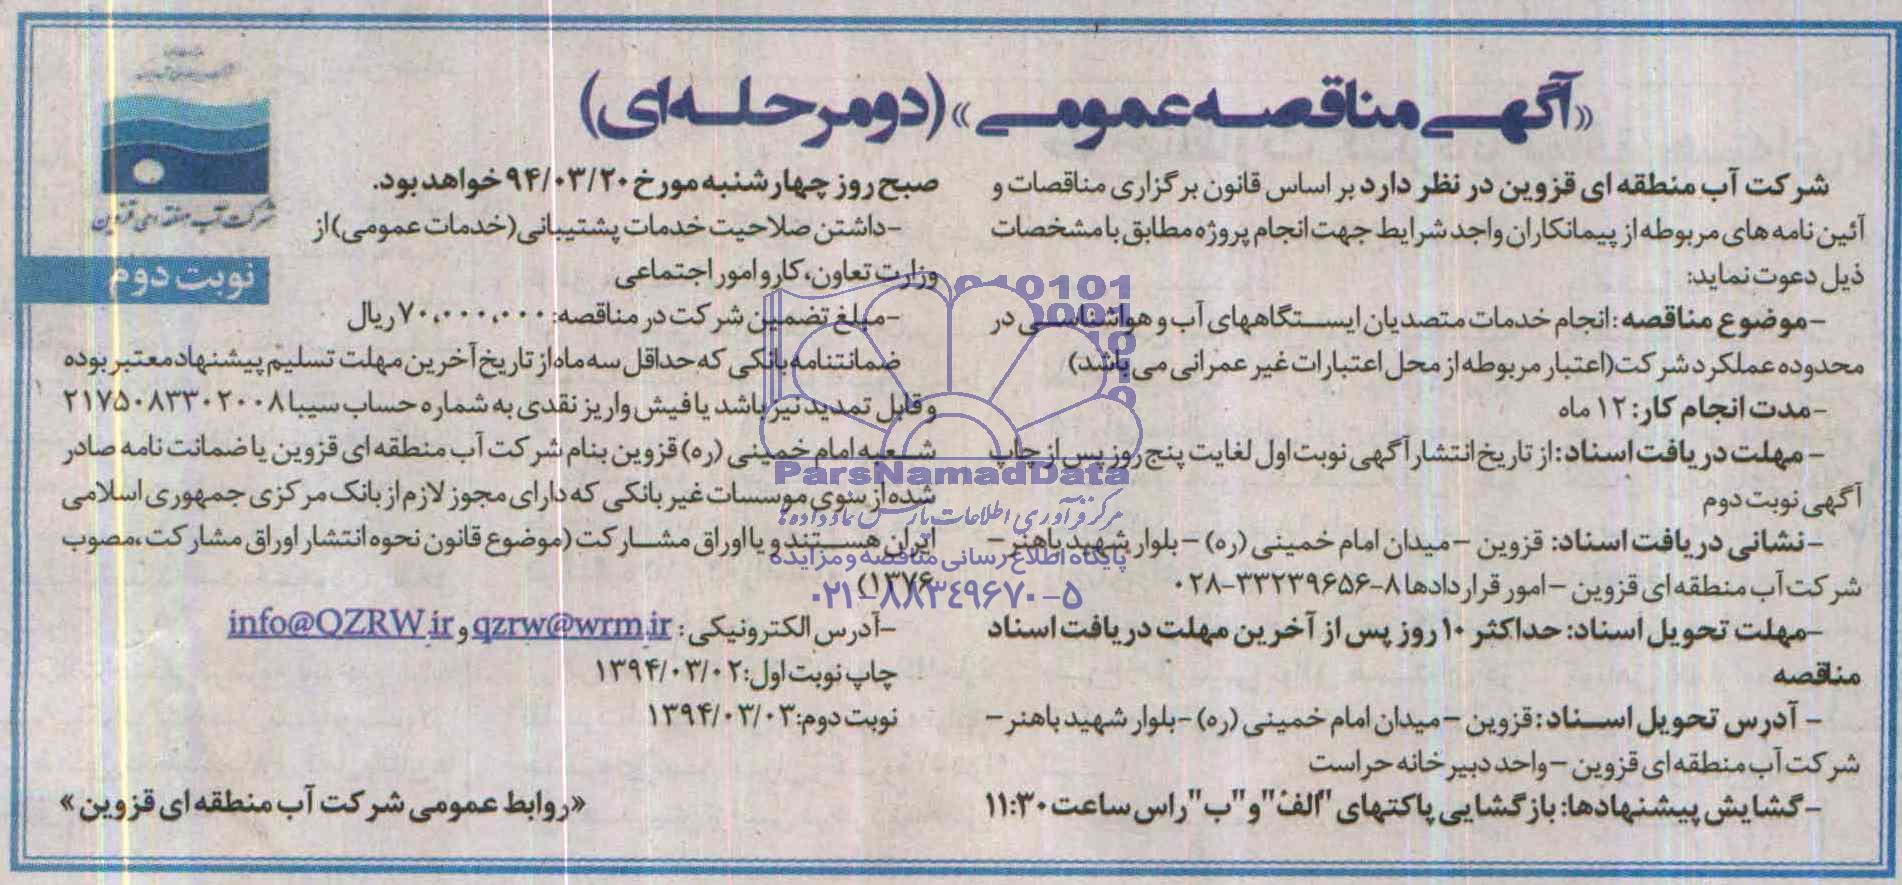 «آگهی مناقصه عمومی» (دو مرحله‌ای)
شرکت آب منطقه ای قزوین
نوبت دوم
شرکت آب منطقه ای قزوین در نظر دارد بر اساس قانون برگزاری مناقصات و
آئین نامه های مربوطه از پیمانکاران واجد شرایط جهت انجام پروژه مطابق با مشخصات
ذیل دعوت نماید:
-موضوع مناقصه: انجام خدمات متصدیان ایستگاههای آب و هواشناسی در
محدوده عملکرد شرکت(اعتبار مربوطه از محل اعتبارات غیر عمرانی می باشد)
-مدت انجام کار: ۱۲ ماه
- مهلت دریافت اسناد: از تاریخ انتشار آگهی نوبت اول لغایت پنج روز پس از چاپ
آگهی نوبت دوم
-نشانی دریافت اسناد: قزوین -میدان امام خمینی (ره) -بلوار شهید باهنر -
شرکت آب منطقه ای قزوین -امور قراردادها ۸-۳۳۲۳۹۶۵۶-۰۲۸
-مهلت تحویل اسناد: حداکثر ۱۰ روز پس از آخرین مهلت دریافت اسناد
مناقصه
- آدرس تحویل اسناد: قزوین -میدان امام خمینی (ره) -بلوار شهید باهنر -
شرکت آب منطقه ای قزوین -واحد دبیر خانه حراست
-گشایش پیشنهادها: بازگشایی پاکتهای "الف" و "ب" راس ساعت ۱۱:۳۰
صبح روز چهارشنبه مورخ ۹۴/۰۳/۲۰ خواهد بود.
-داشتن صلاحیت خدمات پشتیبانی(خدمات عمومی) از
وزارت تعاون، کار و امور اجتماعی
-مبلغ تضمین شرکت در مناقصه: ۷۰،۰۰۰،۰۰۰ ریال
ضمانتنامه بانکی که حداقل سه ماه از تاریخ آخرین مهلت تسلیم پیشنهاد معتبر بوده
و قابل تمدید نیز باشد یا فیش واریز نقدی به شماره حساب سیبا ۲۱۷۵۰۸۳۳۰۲۰۰۸
شعبه امام خمینی (ره) قزوین بنام شرکت آب منطقه ای قزوین یا ضمانت نامه صادر
شده از سوی موسسات غیر بانکی که دارای مجوز لازم از بانک مرکزی جمهوری اسلامی
ایران هستند و یا اوراق مشارکت (موضوع قانون نحوه انتشار اوراق مشارکت،مصوب
۱۳۷۶)
-آدرس الکترونیکی: qzrw@wrm.ir و info@QZRW.ir
چاپ نوبت اول: ۱۳۹۴/۰۳/۰۲
نوبت دوم: ۱۳۹۴/۰۳/۰۳
«روابط عمومی شرکت آب منطقه ای قزوین»
ParsNamadData
مرکز فرآوری اطلاعات پارس نماد داده ها
پایگاه اطلاع رسانی مناقصه و مزایده
۰۲۱-۸۸۳۴۹۶۷۰-۵